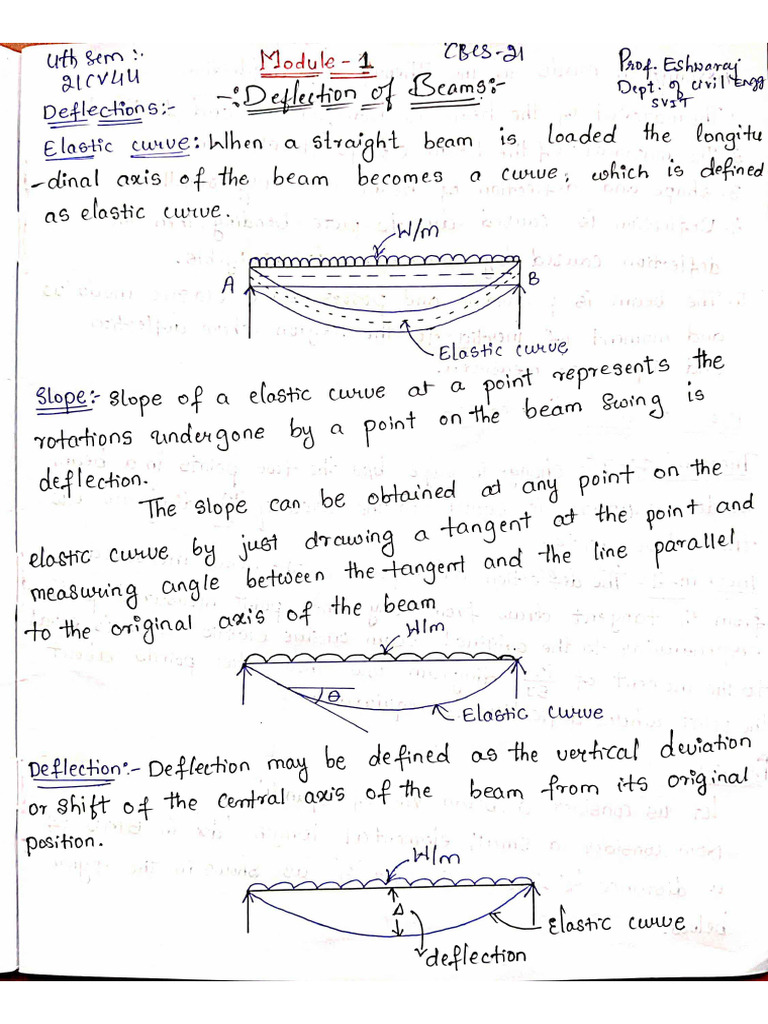 4th sem :-
21CV44
Module - 1
CBCS-21
Prof. Eshwaraj
Dept. of civil Engg
SVIT
-:Deflection of Beams:-
Deflections:-
Elastic curve: When a straight beam is loaded the longitu
-dinal axis of the beam becomes a curve, which is defined
as elastic curve.
W/m
A
B
Elastic curve
Slope:- slope of a elastic curve at a point represents the
rotations undergone by a point on the beam swing is
deflection.
The slope can be obtained at any point on the
elastic curve by just drawing a tangent at the point and
measuring angle between the tangent and the line parallel
to the original axis of the beam
W/m
θ
Elastic curve
Deflection:- Deflection may be defined as the vertical deviation
or shift of the central axis of the beam from its original
position.
W/m
Δ
Elastic curve
deflection